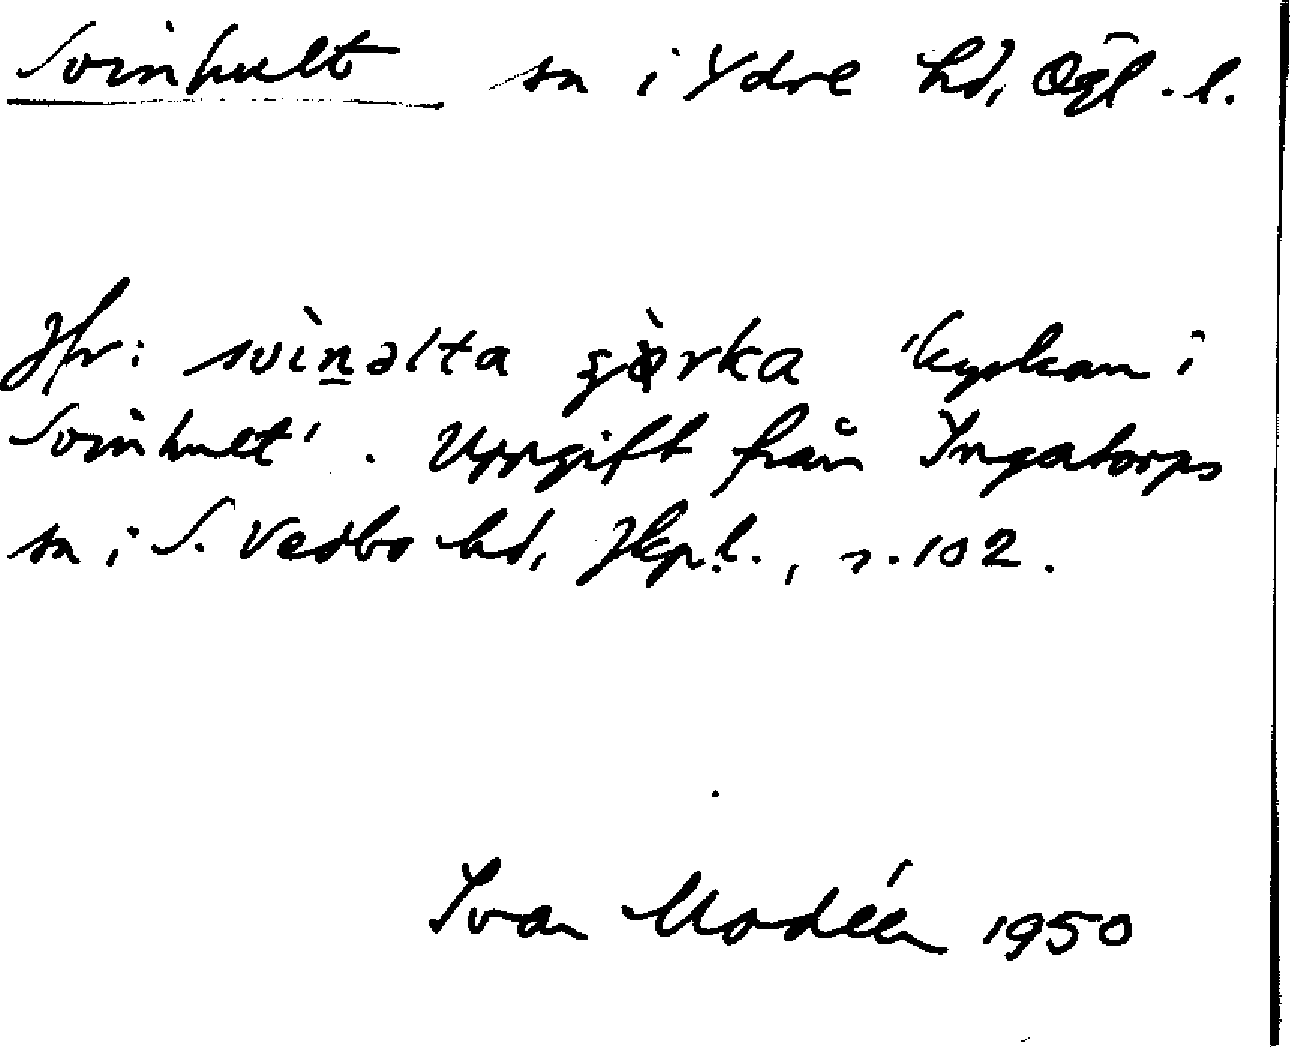 Svinhult sn i Ydre hd, Ögl. l.
Jfr: svìn̲əlta ʂɵ̀rka 'kyrkan i
Svinhult'. Uppgift från Ingatorps
sn i S. Vedbo hd, Jkp. l., s. 102.
Ivar Modéer 1950